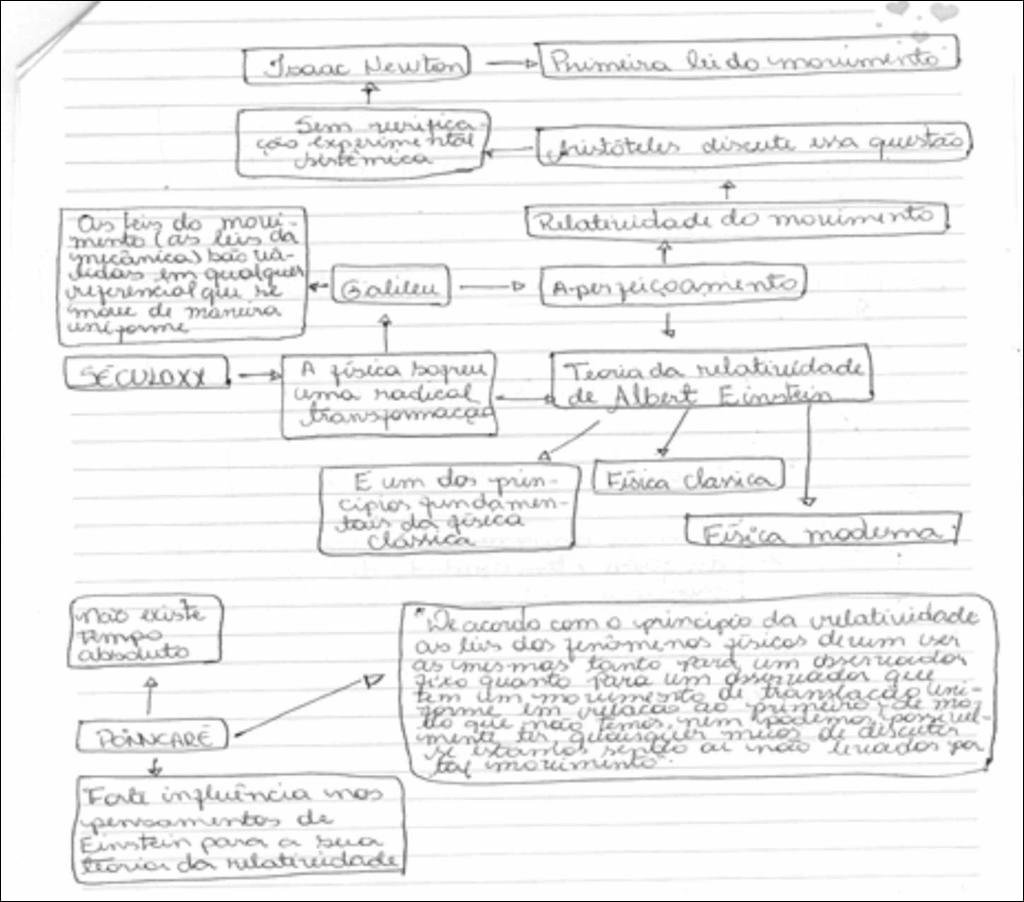 Isaac Newton
Primeira lei do movimento
Sem verifica-
ção experimental
sistêmica
Aristóteles discute essa questão
Relatividade do movimento
As leis do movi-
mento (as leis da
mecânica) são vá-
lidas em qualquer
referencial que se
move de maneira
uniforme
Galileu
Aperfeiçoamento
SÉCULO XX
A física sofreu
uma radical
transformação
Teoria da relatividade
de Albert Einstein
E um dos prin-
cípios fundamen-
tais da física
clássica
Física classica
Física moderna
Não existe
tempo
absoluto
"De acordo com o principio da relatividade
as leis dos fenômenos físicos devem ser
as mesmas tanto para um observador
fixo quanto para um observador que
tem um movimento de translação uni-
forme em relação ao primeiro, de mo-
do que não temos, nem podemos, possivel-
mente ter quaisquer meios de discutir
se estamos sendo ou não levados por
tal movimento".
POINNCARÉ
Forte influência nos
pensamentos de
Einstein para a sua
teoria da relatividade